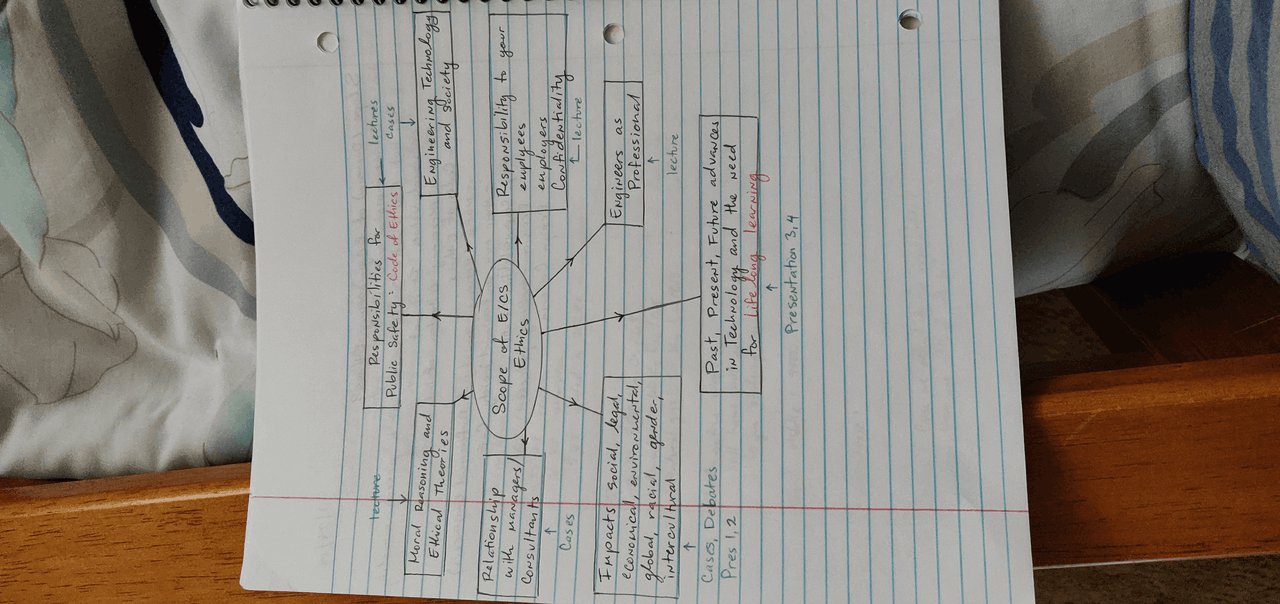 lectures
cases
lecture
Responsibilities for
Public Safety: Code of Ethics
Moral Reasoning and
Ethical Theories
Engineering Technology
and Society
Scope of E/CS
Ethics
Relationship
with managers/
Consultants
Cases
Responsibility to your
emplyees
employers
Confidentiality
lecture
Impacts social, legal,
economical, environmental,
global, racial, gender,
intercultural
Cases, Debates
Pres 1, 2
Engineers as
Professional
lecture
Past, Present, Future advances
in Technology and the need
for Life long learning
Presentation 3, 4